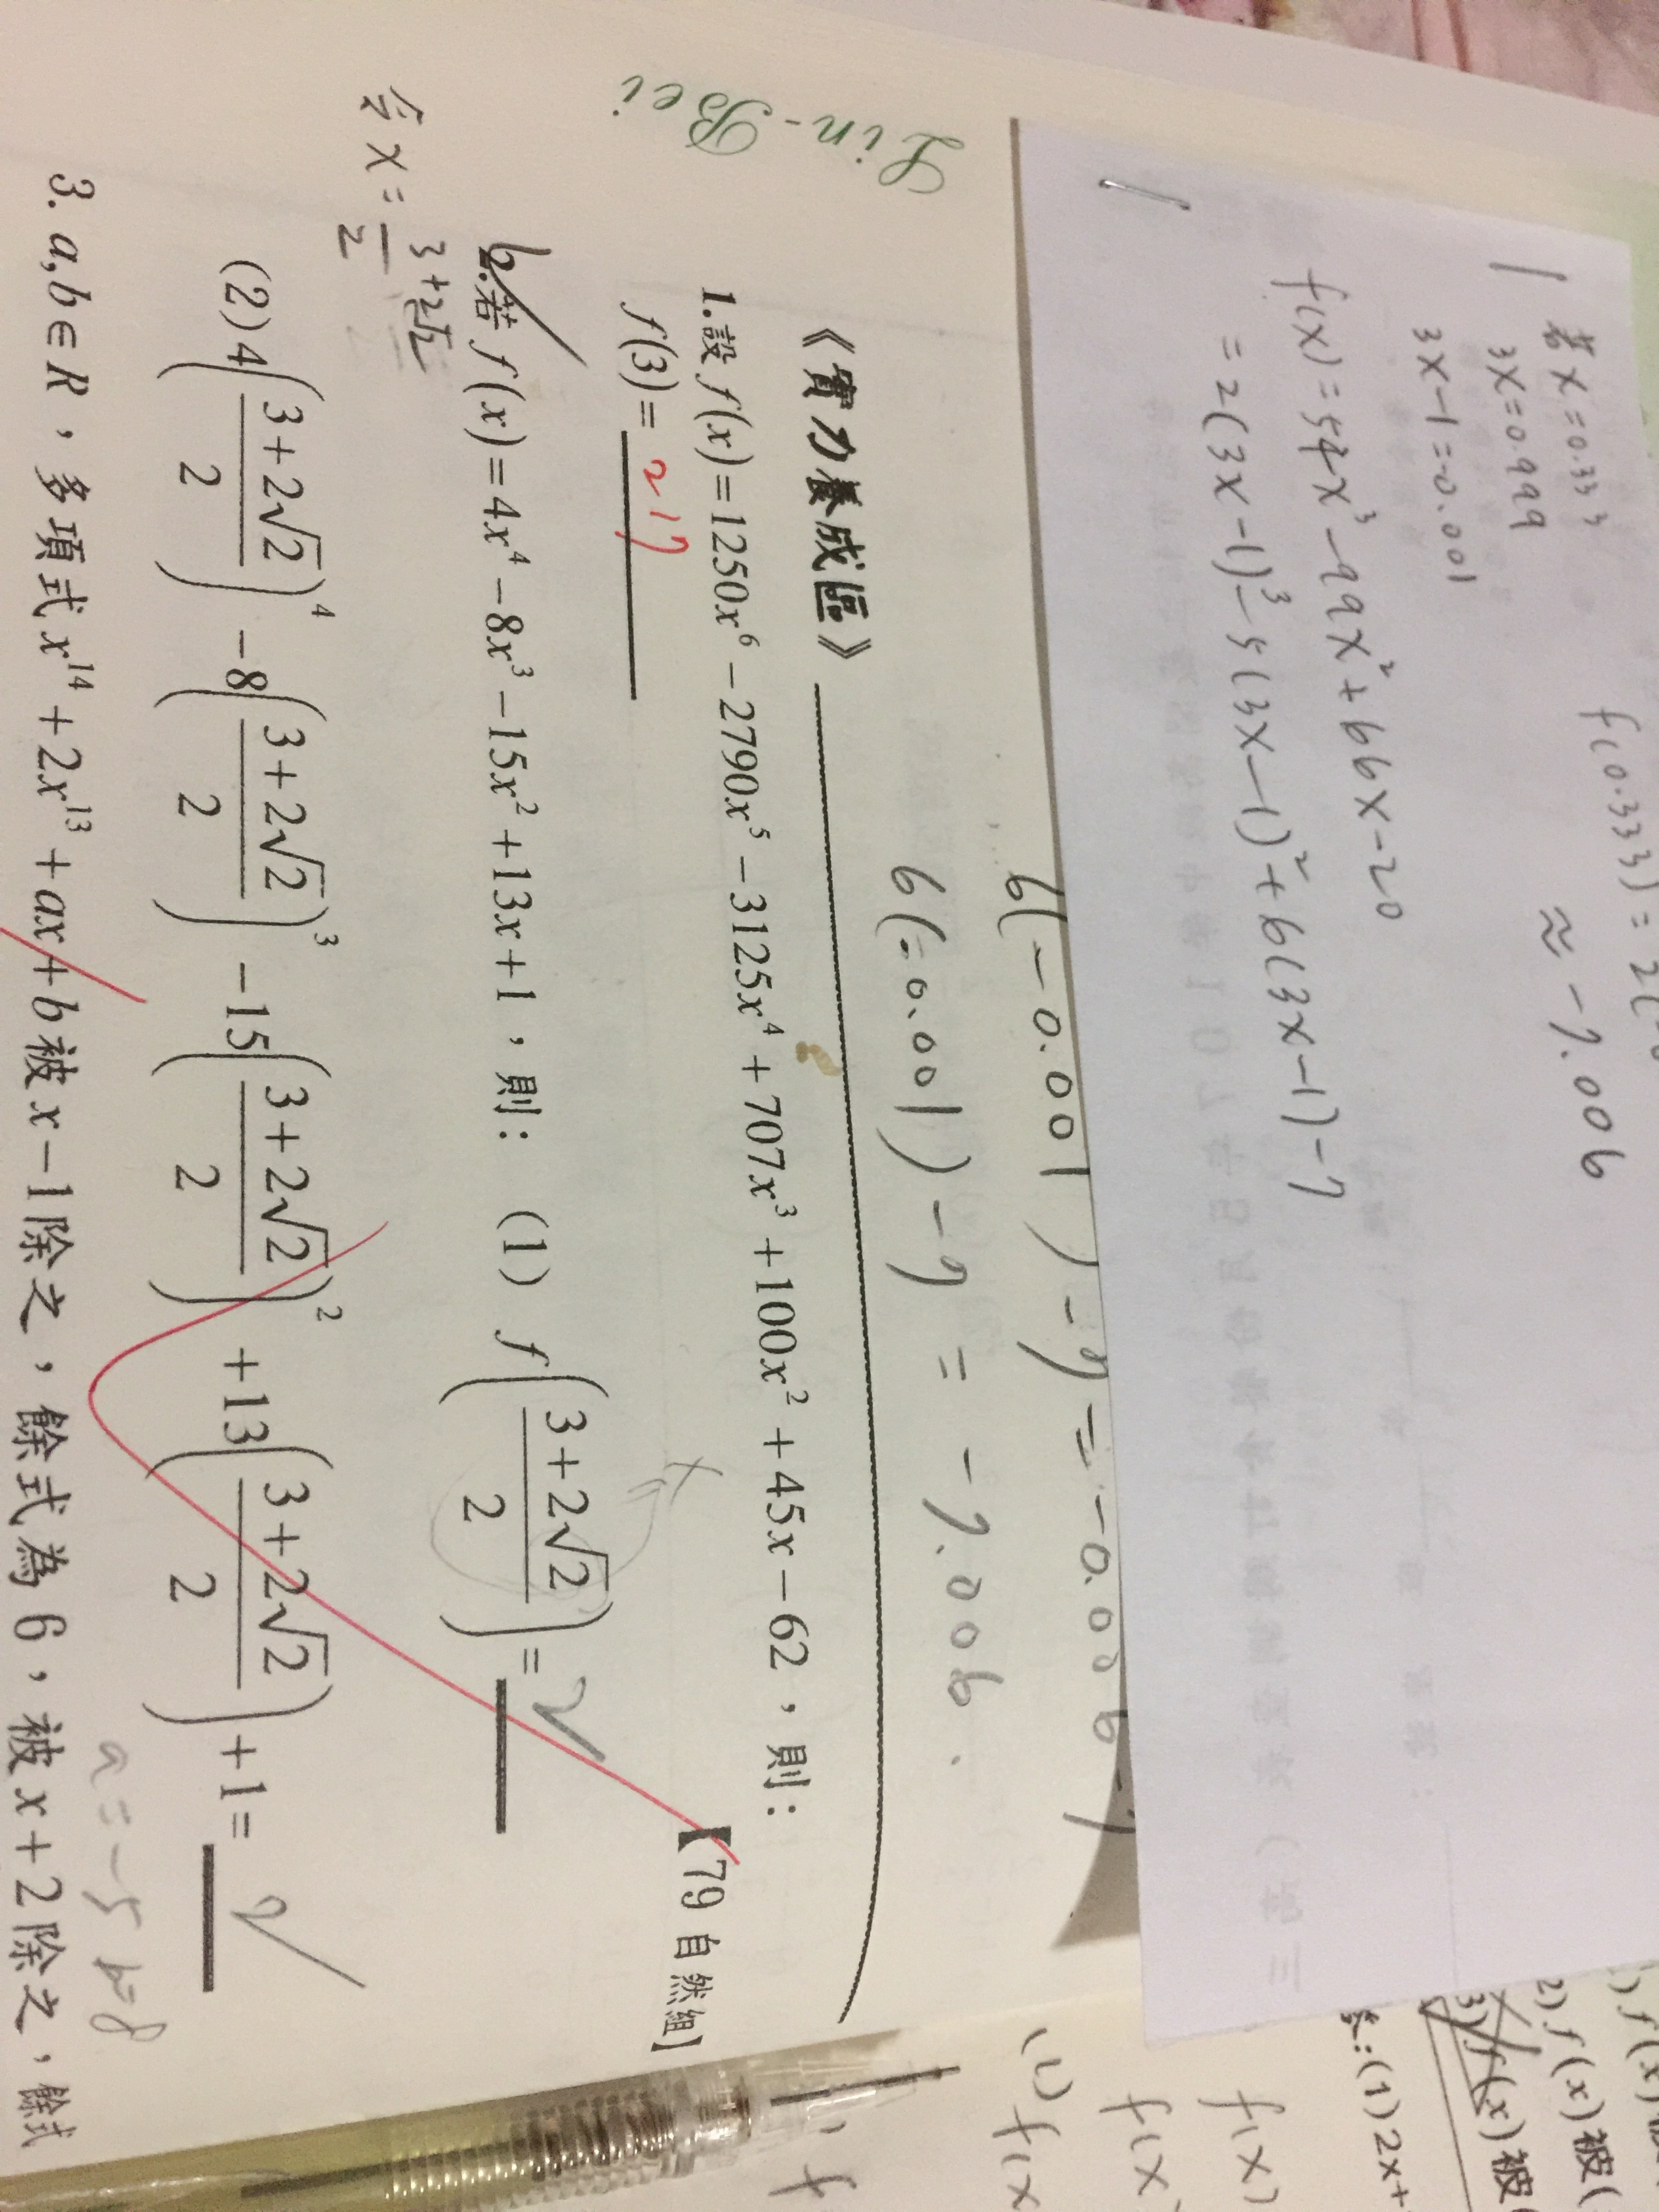 f(0.333) = 2(-0
≈ -7.006
若 x = 0.333
3x = 0.999
3x-1 = -0.001
f(x) = 54x³ - 99x² + 66x - 20
= 2(3x-1)³ - 5(3x-1)² + 6(3x-1) - 7
6(-0.001) - 7 = -0.006 - 7
6(-0.001) - 7 = -7.006
Lin-Bei
《實力養成區》
1.設 f(x)=1250x⁶-2790x⁵-3125x⁴+707x³+100x²+45x-62,則:
f(3)= 217
【79 自然組】
2.若 f(x)=4x⁴-8x³-15x²+13x+1,則: (1) f((3+2√2)/2)= 2
令 x = (3+2√2)/2
(2) 4((3+2√2)/2)⁴-8((3+2√2)/2)³-15((3+2√2)/2)²+13((3+2√2)/2)+1= 2
a = -5 b=8
3. a,b∈R,多項式 x¹⁴+2x¹³+ax+b 被 x-1 除之,餘式為 6,被 x+2 除之,餘式
2) f(x)被(
3) f(x)被(
答:(1) 2x+
f(x)
f(x)
(1) f(x